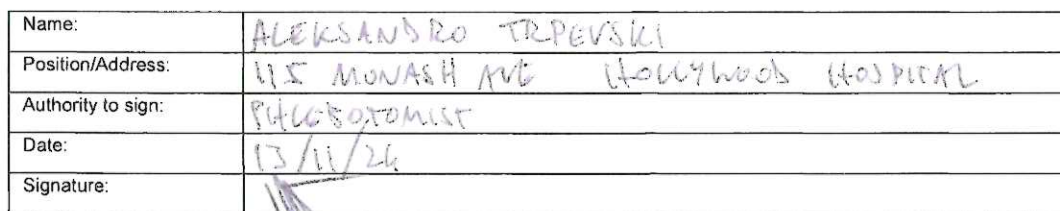 Name: ALEKSANDRO TRPEVSKI
Position/Address: 115 MONASH AVE HOLLYWOOD HOSPITAL
Authority to sign: PHLEBOTOMIST
Date: 13/11/24
Signature: